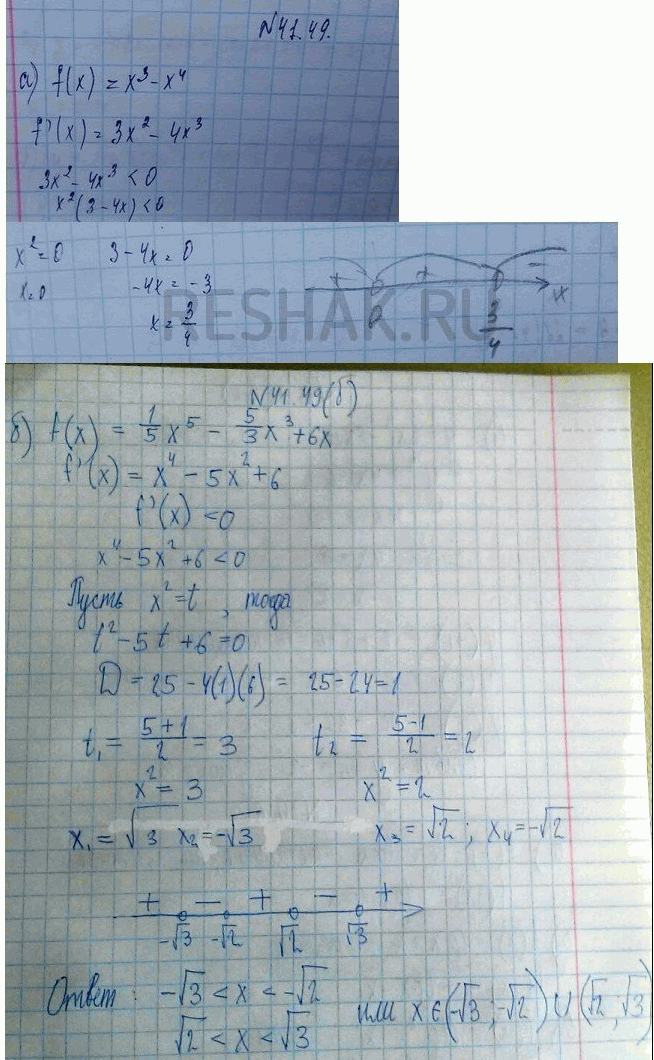 N41.49.
а) f(x) = x³ - x⁴
f'(x) = 3x² - 4x³
3x² - 4x³ < 0
x²(3 - 4x) < 0
x² = 0 3 - 4x = 0
x = 0 -4x = -3
x = 3/4
+ + -
0 3/4 x
RESHAK.RU
N41.49(б)
б) f(x) = 1/5 x⁵ - 5/3 x³ + 6x
f'(x) = x⁴ - 5x² + 6
f'(x) < 0
x⁴ - 5x² + 6 < 0
Пусть x² = t, тогда
t² - 5t + 6 = 0
D = 25 - 4(1)(6) = 25 - 24 = 1
t₁ = (5+1)/2 = 3 t₂ = (5-1)/2 = 2
x² = 3 x² = 2
x₁ = √3 x₂ = -√3 x₃ = √2; x₄ = -√2
+ - + - +
-√3 -√2 √2 √3
Ответ: -√3 < x < -√2 или x ∈ (-√3; -√2) ∪ (√2, √3)
√2 < x < √3